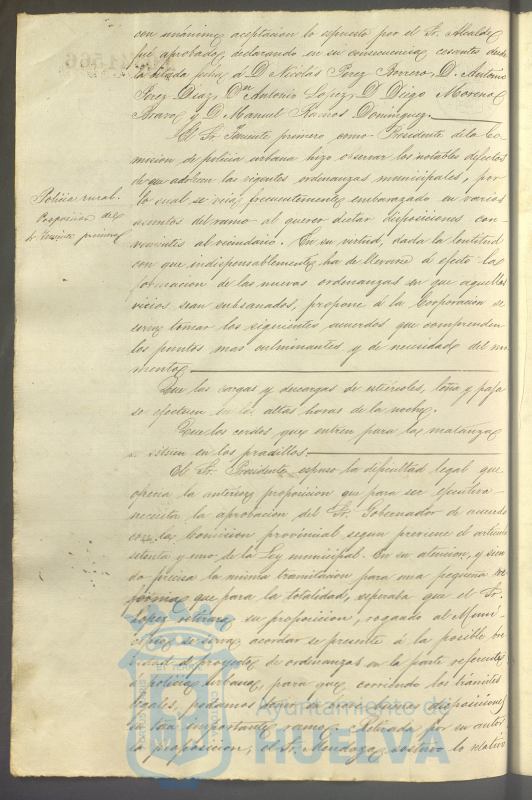 con unánime aceptacion lo espuesto por el Sr. Alcalde
fué aprobado, declarando en su consecuencia cesantes desde
la citada fecha á D. Nicolás Perez Borrero, D. Antonio
Perez Diaz, Dn Antonio Lopez, D. Diego Moreno
Bravo y D. Manuel Ramos Dominguez.
El Sr. Teniente primero como Presidente de la Co-
mision de policia urbana hizo observar los notables defectos
de que adolecen las vigentes ordenanzas municipales, por
lo cual se veia frecuentemente embarazado en varios
asuntos del ramo al querer dictar disposiciones con-
venientes al vecindario. En su virtud, dada la lentitud
con que indispensablemente ha de llevarse á efecto la
formacion de las nuevas ordenanzas en que aquellos
vicios sean subsanados, propone á la Corporacion se
sirva tomar los siguientes acuerdos que comprenden
los puntos mas culminantes y de necesidad del mo-
mento.
Policia rural.
Proposicion del
Sr. Teniente primero
Que las cargas y descargas de estiércoles, leña y paja
se efectuen en las altas horas de la noche.
Que los cerdos que entren para la matanza
se situen en los pradillos.
El Sr. Presidente espuso la dificultad legal que
ofrecia la anterior proposicion que para ser ejecutiva
necesita la aprobacion del Sr. Gobernador de acuerdo
con la Comision provincial segun previene el articulo
setenta y uno de la Ley municipal. En su atencion, y sien-
do precisa la misma tramitacion para una pequeña re-
forma que para la totalidad, esperaba que el Sr.
Lopez retirara su proposicion, rogando al Muni-
cipio se sirva acordar se presente á la posible bre-
vedad el proyecto de ordenanzas en la parte referente
á policia urbana, para que corriendo los trámites
legales, podamos tener cuanto antes disposiciones
en tan importante ramo. Retirada por su autor
la proposicion, el Sr. Mendoza sostuvo lo relativo
Ayuntamiento de
HUELVA